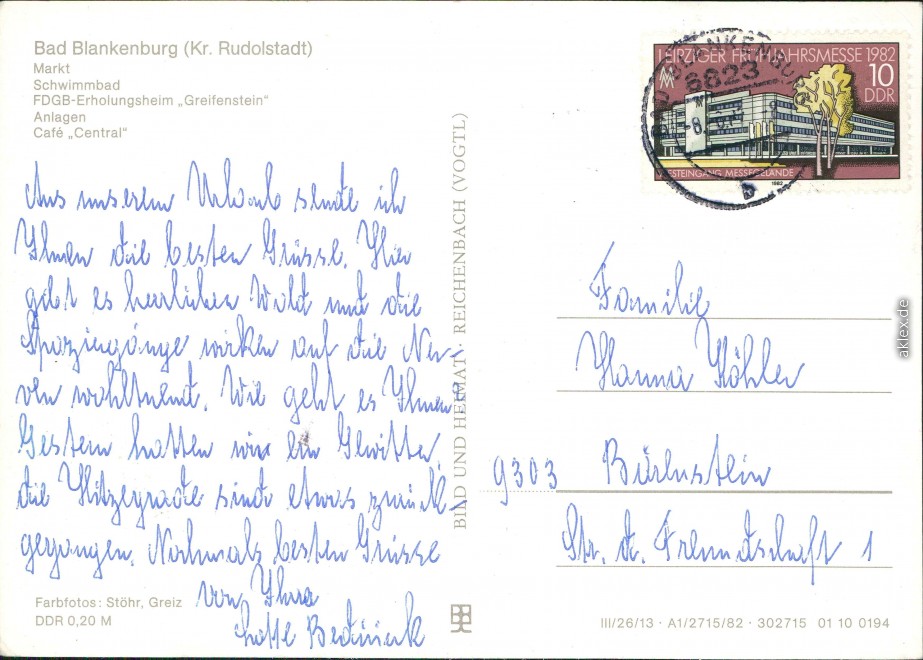 Bad Blankenburg (Kr. Rudolstadt)
Markt
Schwimmbad
FDGB-Erholungsheim „Greifenstein“
Anlagen
Café „Central“
Aus unserem Urlaub sende ich
Ihnen die besten Grüsse. Hier
gibt es herrlichen Wald und die
Spaziergänge wirken auf die Ner-
ven wohltuend. Wie geht es Ihnen
Gestern hatten wir ein Gewitter,
die Hitzegrade sind etwas zurück-
gegangen. Nochmals besten Grüsse
von Ihrer
Lotte
Farbfotos: Stöhr, Greiz
DDR 0,20 M
BILD UND HEIMAT REICHENBACH (VOGTL)
LEIPZIGER FRÜHJAHRSMESSE 1982
MM
10
DDR
WESTEINGANG MESSEGELÄNDE
1982
BAD BLANKENBURG
6823
b
Familie
Hanna Köhler
9303 Bärenstein
Str. d. Freundschaft 1
III/26/13 · A1/2715/82 · 302715 01 10 0194
aklex.de